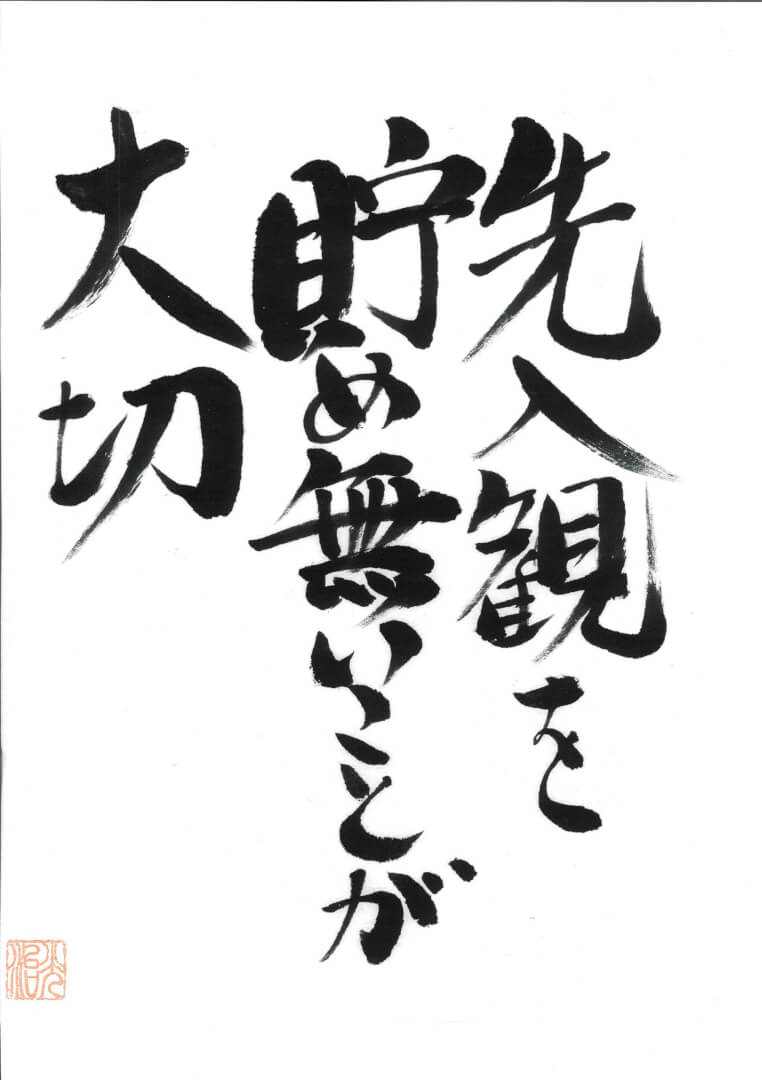 先入観を
貯め無いことが
大切